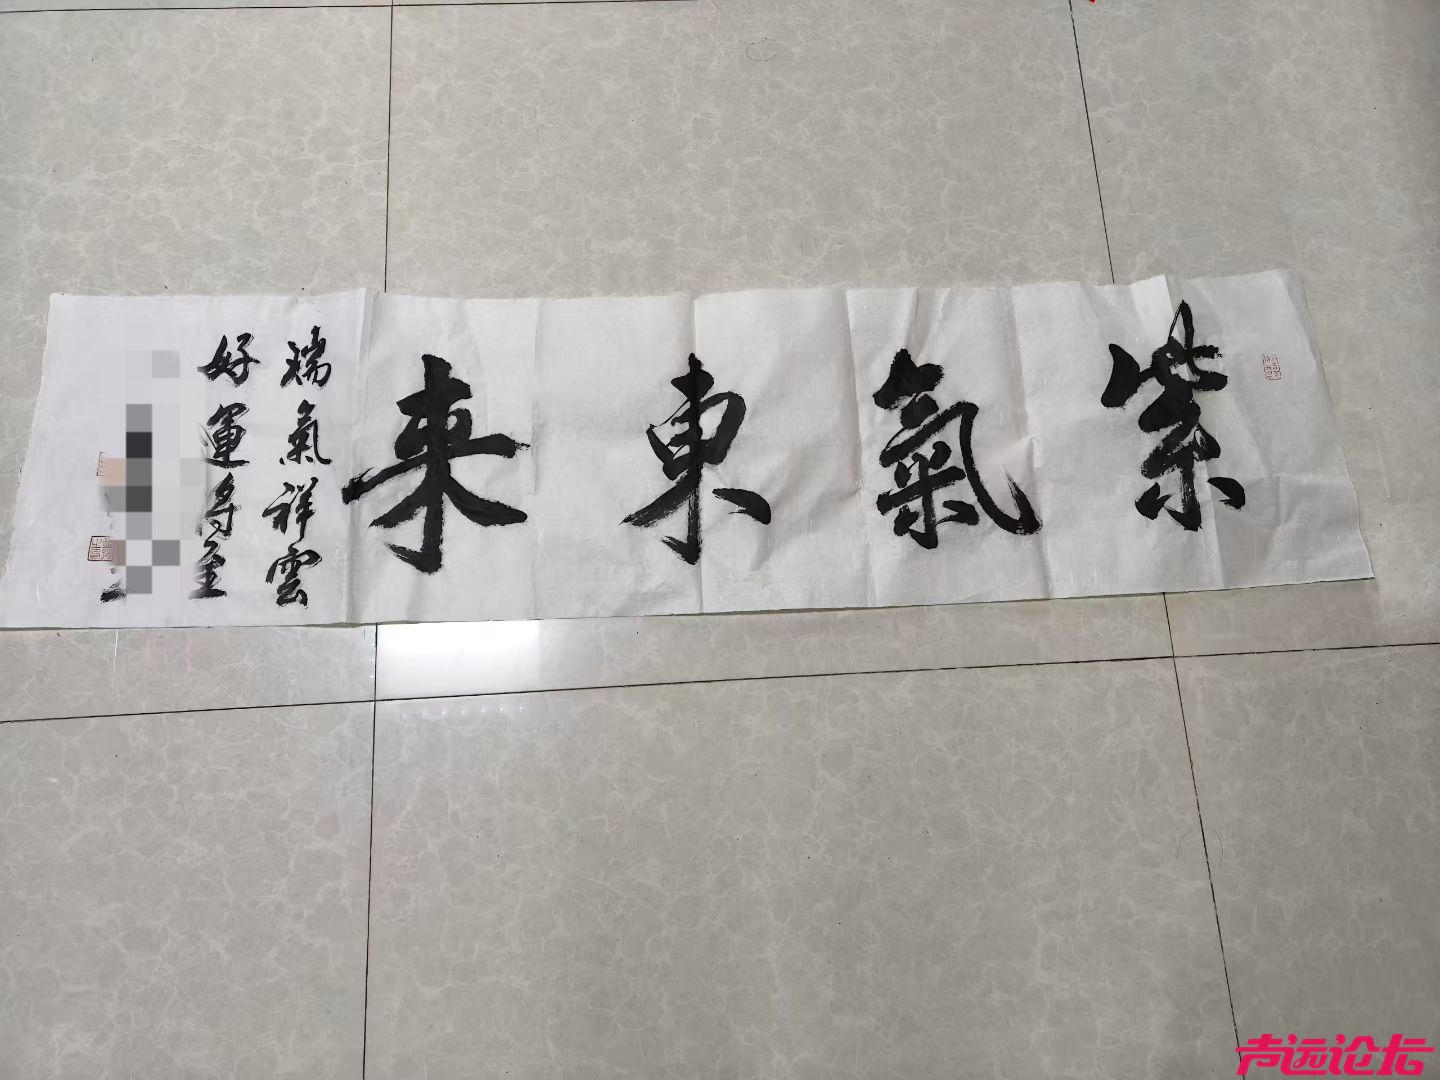 紫氣東来
瑞氣祥雲
好運将至
声远论坛